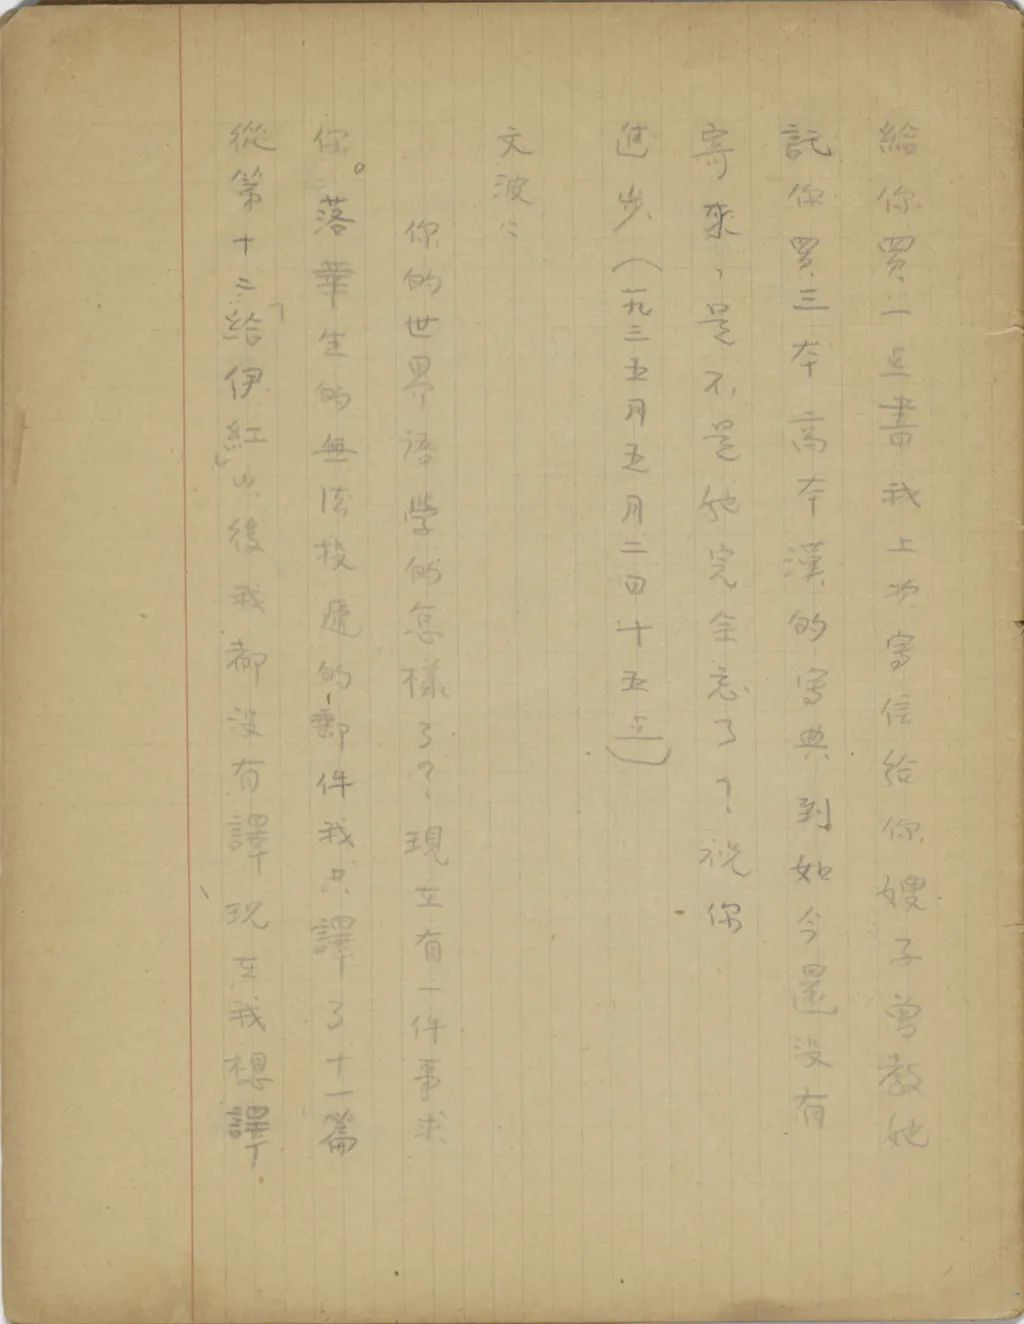 給你買一点書我上次寫信給你嫂子曾教她
託你買三本高本漢的字典到如今還没有
寄來，是不是她完全忘了？祝你
進步（一九三五月五月二四十五立）
文波：
你的世界語学的怎樣了？現在有一件事求
你。落華生的無法投遞的郵件我只譯了十一篇
從第十二「給伊紅」以後我都没有譯現在我想譯